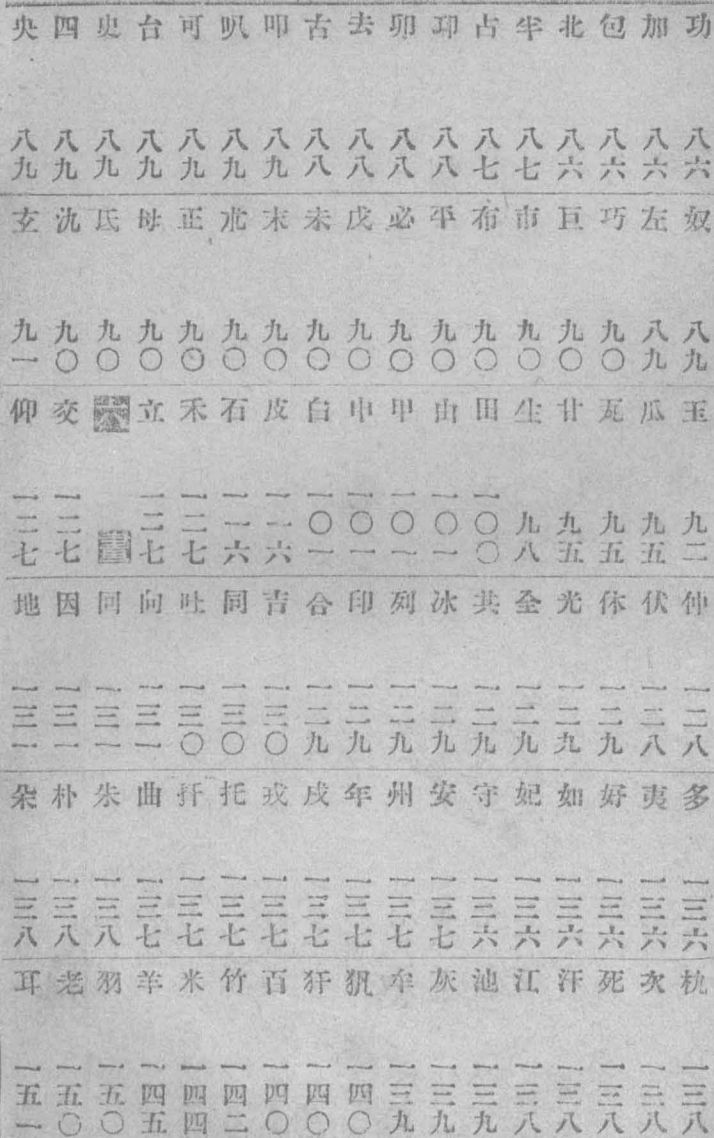 功 八六
加 八六
包 八六
北 八六
半 八七
占 八七
卬 八八
卯 八八
去 八八
古 八八
叩 八九
叭 八九
可 八九
台 八九
史 八九
四 八九
央 八九
奴 八九
左 八九
巧 九〇
巨 九〇
市 九〇
布 九〇
平 九〇
必 九〇
戊 九〇
未 九〇
末 九〇
朮 九〇
正 九〇
母 九〇
氏 九〇
氿 九〇
玄 九一
玉 九二
瓜 九五
瓦 九五
甘 九五
生 九八
田 一〇〇
由 一〇一
甲 一〇一
申 一〇一
白 一〇一
皮 一一六
石 一一六
禾 一二七
立 一二七
六畫
交 一二七
仰 一二七
仲 一二八
伏 一二八
休 一二九
光 一二九
全 一二九
共 一二九
冰 一二九
列 一二九
印 一二九
合 一二九
吉 一三〇
同 一三〇
吐 一三〇
向 一三一
回 一三一
因 一三一
地 一三一
多 一三六
夷 一三六
好 一三六
如 一三六
妃 一三六
守 一三六
安 一三七
州 一三七
年 一三七
戌 一三七
戎 一三七
托 一三七
扞 一三七
曲 一三七
朱 一三八
朴 一三八
朵 一三八
一三八
次 一三八
死 一三八
汗 一三八
江 一三八
池 一三九
灰 一三九
牟 一三九
一四〇
犴 一四〇
百 一四〇
竹 一四二
米 一四四
羊 一四五
羽 一五〇
老 一五〇
耳 一五一